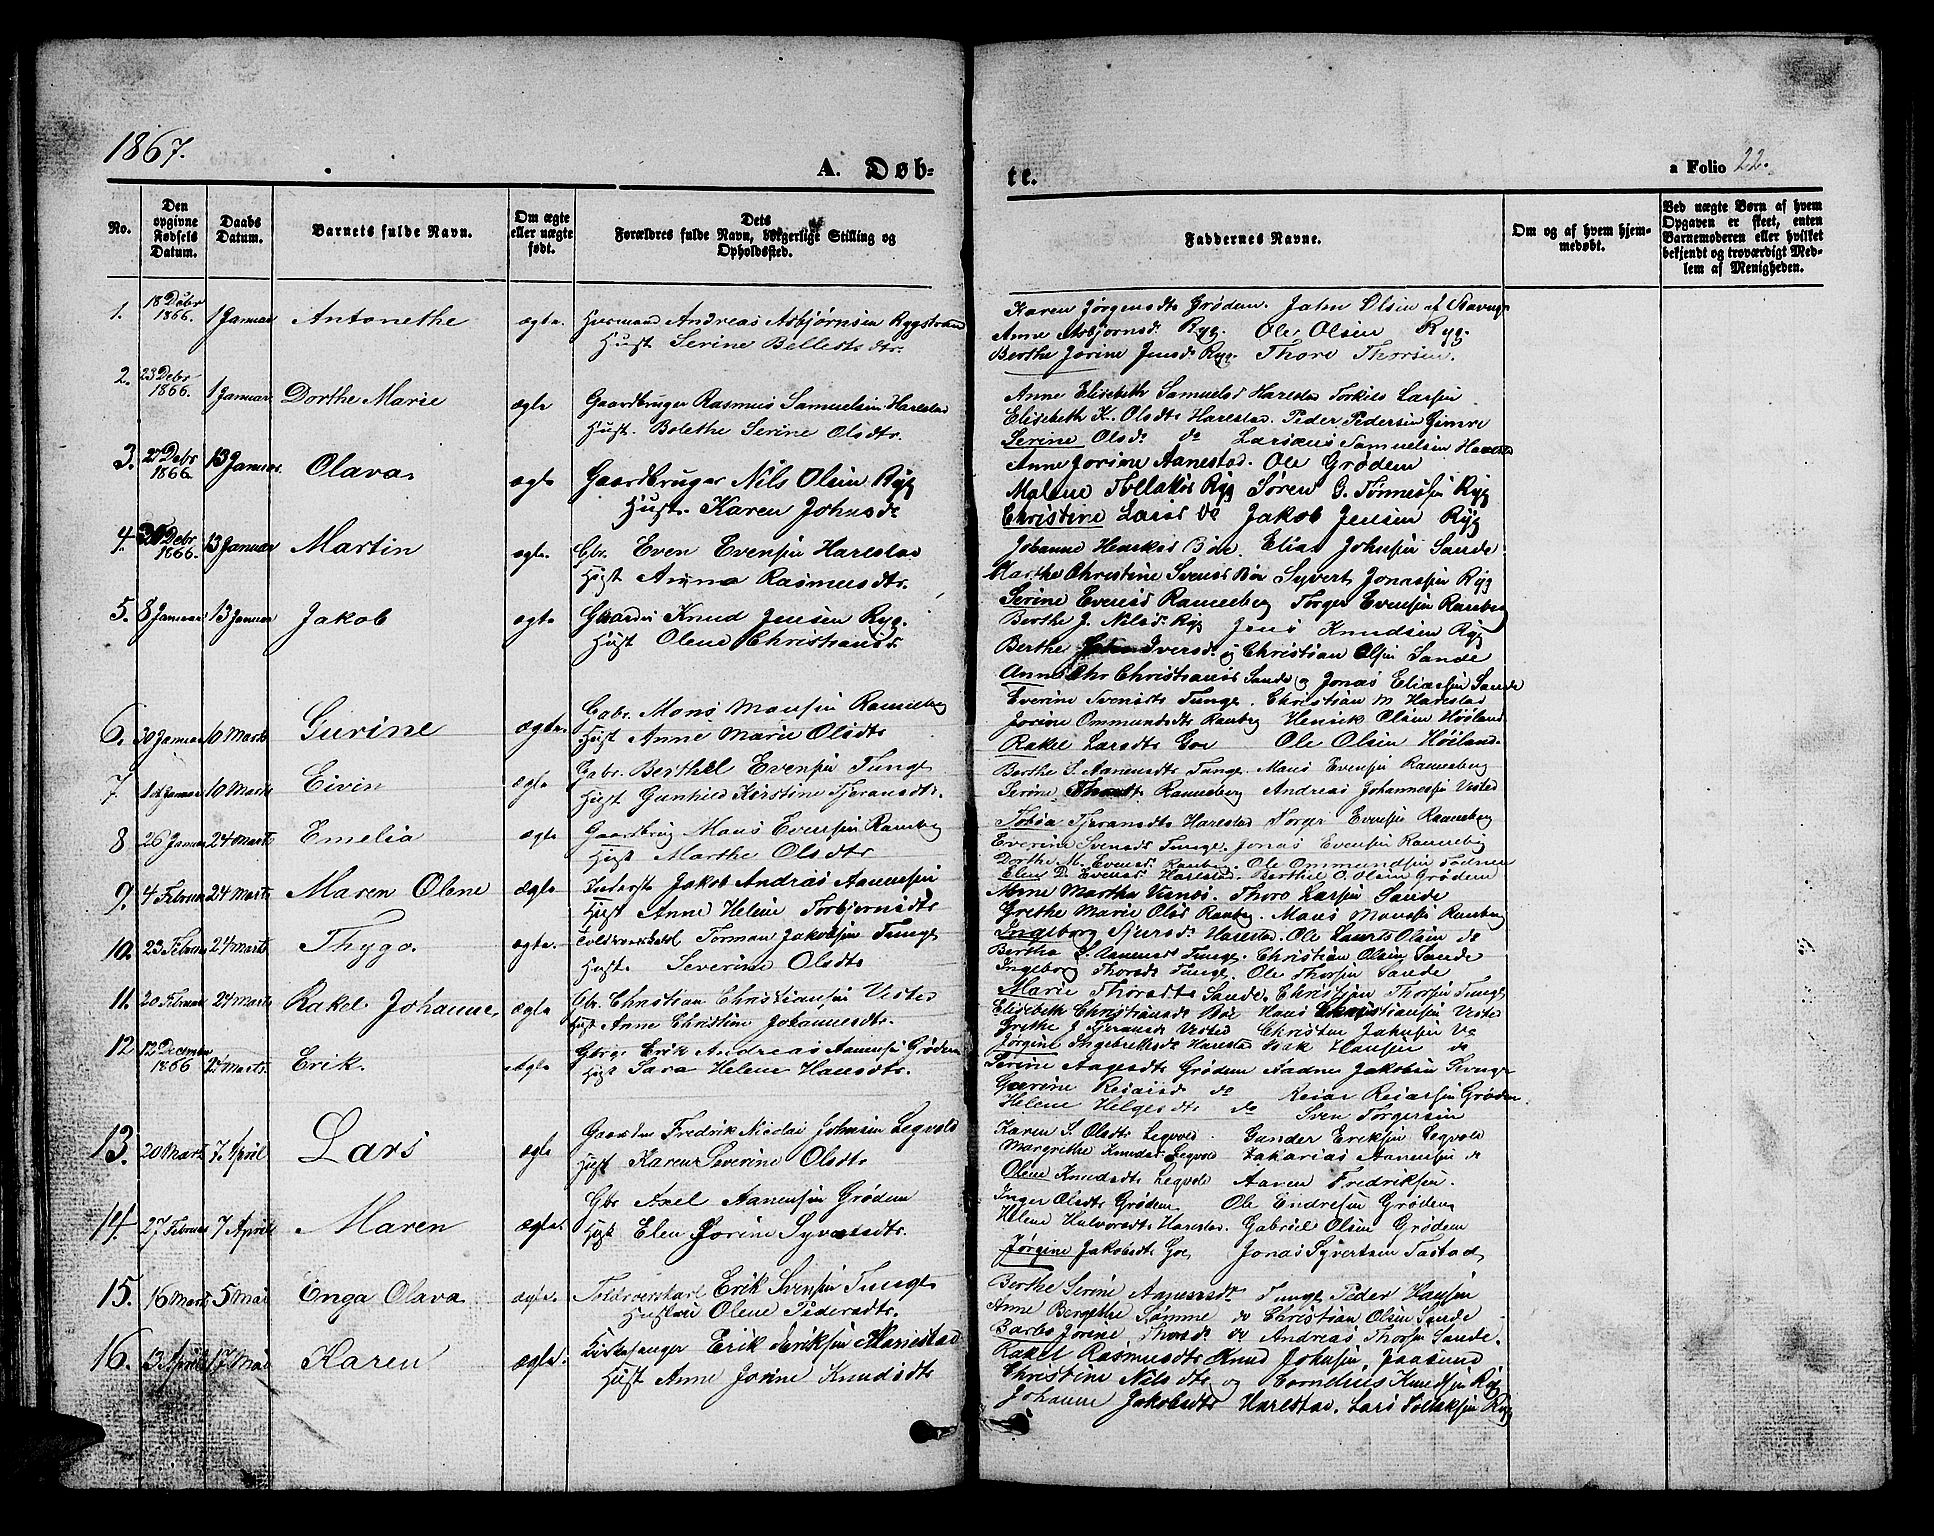 1867.
A. Døb-
te.
a Folio 22.
No.
Den opgivne Fødsels Datum.
Daabs Datum.
Barnets fulde Navn.
Om ægte eller uægte født.
Dets Forældres fulde Navn, borgerlige Stilling og Opholdssted.
Faddernes Navne.
Om og af hvem hjemmedøbt.
Ved uægte Børn af hvem Opgaven er skeet, enten Barnemoderen eller hvilket bekjendt og troværdigt Medlem af Menigheden.
1. 18 Debr 1866. 1 Januar Antonethe ægte. Huusmand Andreas Asbjørnsen Rygstrand
Hust Serine Bellests dtr.
Karen Jørgensdtr Grødem. Jaten Olsen af Stavng
Anne Asbjørnsd. Ryg. Ole Olsen Ryg.
Berthe Jorine Jensd Ryg. Thore Thorsen.
2. 23 Debr 1866. 1 Januar Dorthe Marie ægte Gaardbruger Rasmus Samuelsen Harestad
Hust. Bolethe Serine Olsdtr.
Anne Elisebeth Samuelsd Harestad Torkils Larsen
Elisebeth K. Olsdtr Harestad. Peder Pedersen Gimre
Serine Olsd. do Samuelsen Harestad
3. 27 Debr 1866. 13 Januar Olava. ægte Gaardbruger Nils Olsen Ryg
Hust. Karen Johnsd
Anne Jorine Aanestad. Ole Grødem
Malene Tollaksd Ryg Søren G. Tønnessen Ryg
Christine Larsd do Jakob Jensen Ryg
4. Debr. 1866. 13 Januar Martin ægte. Gbr. Even Evensen Harestad
Hust Anna Rasmusdtr.
Johanne Henriksd Bøe. Elias Johnsen Sande.
Marthe Christine Svensd Bøe Syvert Jonassen Ryg
Serine Evensd Ranneberg Torger Evensen Ranbrg
5. 8 Januar 13 Januar Jakob ægte Gaardbr Knud Jensen Ryg.
Hust Olene Christiansd.
Berthe J. Nilsd. Ryg Jens Knudsen Ryg
Berthe Iversd. og Christian Olsen Sande
Anne Chr Christiansd Sande og Jonas Eliassen Sande
6. 30 Januar 10 Marts Gurine ægte. Gabr. Mons Monsen Ranneberg
Hust Anne Marie Olsdtr
Everine Svensdtr Tunge. Christian M Harestad
Jorine Ommundsdtr Ranberg Henrik Olsen Høiland
Rakel Larsdtr Goe Ole Olsen Høiland.
7. Januar 10 Marts Eivin ægte Gabr. Berthel Evensen Tunge
Hust Gunhild Kirstine Tjeransdtr.
Berthe S. Aanensdtr Tunge. Mons Evensen Ranneberg
Serine Ranneberg Andreas Johannessen Visted
8 26 Januar 24 Marts Emelia ægte Gaardbrug Mons Evensen Ranberg
Hust Marthe Olsdtr
Tobia Tjeransdtr Harestad Torger Evensen Ranneberg
Everine Svensd Tunge. Jonas Evensen Ranneberg
Dorthe M. Evensd. Ranberg. Ole Ommundsen Todnem
9. 4 Februar 24 Marts Maren Olene ægte Jakob Andrias Aanensen
Hust Anne Helene Torbjørnsdtr
Elen D. Evensd. Harestad. Berthel O. Olsen Grødem
Anne Martha Visnes. Thore Larsen Sande
Grethe Marie Olsd Ranberg. Mons Monsen Ranberg
10. 23 Februar 24 Marts Thygo. ægte. Toldroerskarl Torman Jakobsen Tunge
Hust. Severine Olsdtr
Ingeborg Sjursd. Harestad. Ole Laurts Olsen do
Bertha S. Aanensd Tunge. Christian Olsen Sande
Ingeborg Thorsd Tunge. Ole Thorsen Sande
11. 20 Februar 24 Marts Rakel Johanne. ægte Gbr. Christian Christiansen Visted
Hust Anne Christine Johannesdtr.
Marie Thorsdtr Sande. Christjen Thorsen Tunge
Elisebeth Christiansd Bøe Hans Christiansen Visted
Grethe J. Tjeransd Visted Christen Johnsen do
12 12 Decemer 1866 24 Marts. Erik. ægte Gbrg. Erik Andreas Aanensen Grødem
Hust Sara Helene Hansdtr.
Jørgine Ingebrethsd Harestad Isak Hansen do
Serine Aagesdtr Grødem Aadne Jakobsen Tunge
Gurine Reiarsd do Reiar Reiarsen Grødem.
Helene Helgesdtr do Sven Torgersen
13. 20 Marts 7. April Lars ægte Fredrik Nicolai Johnsen Legvold
Hust Karen Severine Olsdtr
Karen S. Olsdtr Legvold. Gunder Eriksen Legvold
Margrethe Knudsd. Legvold Zakarias Aanensen do
Olene Knudsdtr Legvold Aaren Fredriksen.
14. 27 Februar 7 April Maren ægte. Gbr Axel Aanensen Grødem
Hust Elen Jorine Syvertsdtr.
Inger Olsdtr Grødem Ole Endresen Grødem
Helene Halvorsdtr Harestad. Gabriel Olsen Grødem
Jørgine Jakobsdtr Goe Jonas Syvertsen Tastad
15. 16 Marts 5 Mai Enga Olava ægte. Toldroerskarl Erik Svensen Tunge
Hustru Olene Pedersdtr.
Berthe Serine Aanensdtr Tunge Peder Hansen
Anne Bergithe Sømme do Christian Olsen Sande
Barbr Jorine Thorsd do Andreas Thorsen Sande.
16. 13 April 17 Mai Karen ægte. Kirkesanger Erik Eriksen Harestad
Hust Anne Jorine Knudsdtr
Rakel Rasmusdtr Knud Johnsen, Jaasund
Christine Nilsdtr og Cornelius Knudsen Ryg
Johanne Jakobsdtr Harestad. Lars Tollaksen Ryg